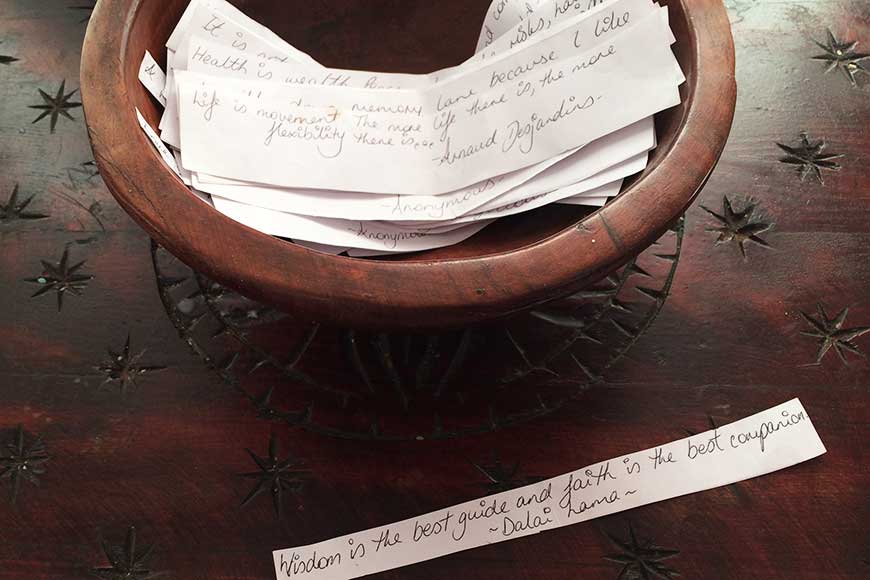 It is
Health is wealth
risks,
memory lane because I like
Life is movement. The more life there is, the more
flexibility there is...
-Arnaud Desjardins-
-Anonymous-
-Anonymous
Wisdom is the best guide and faith is the best companion.
~Dalai Lama~